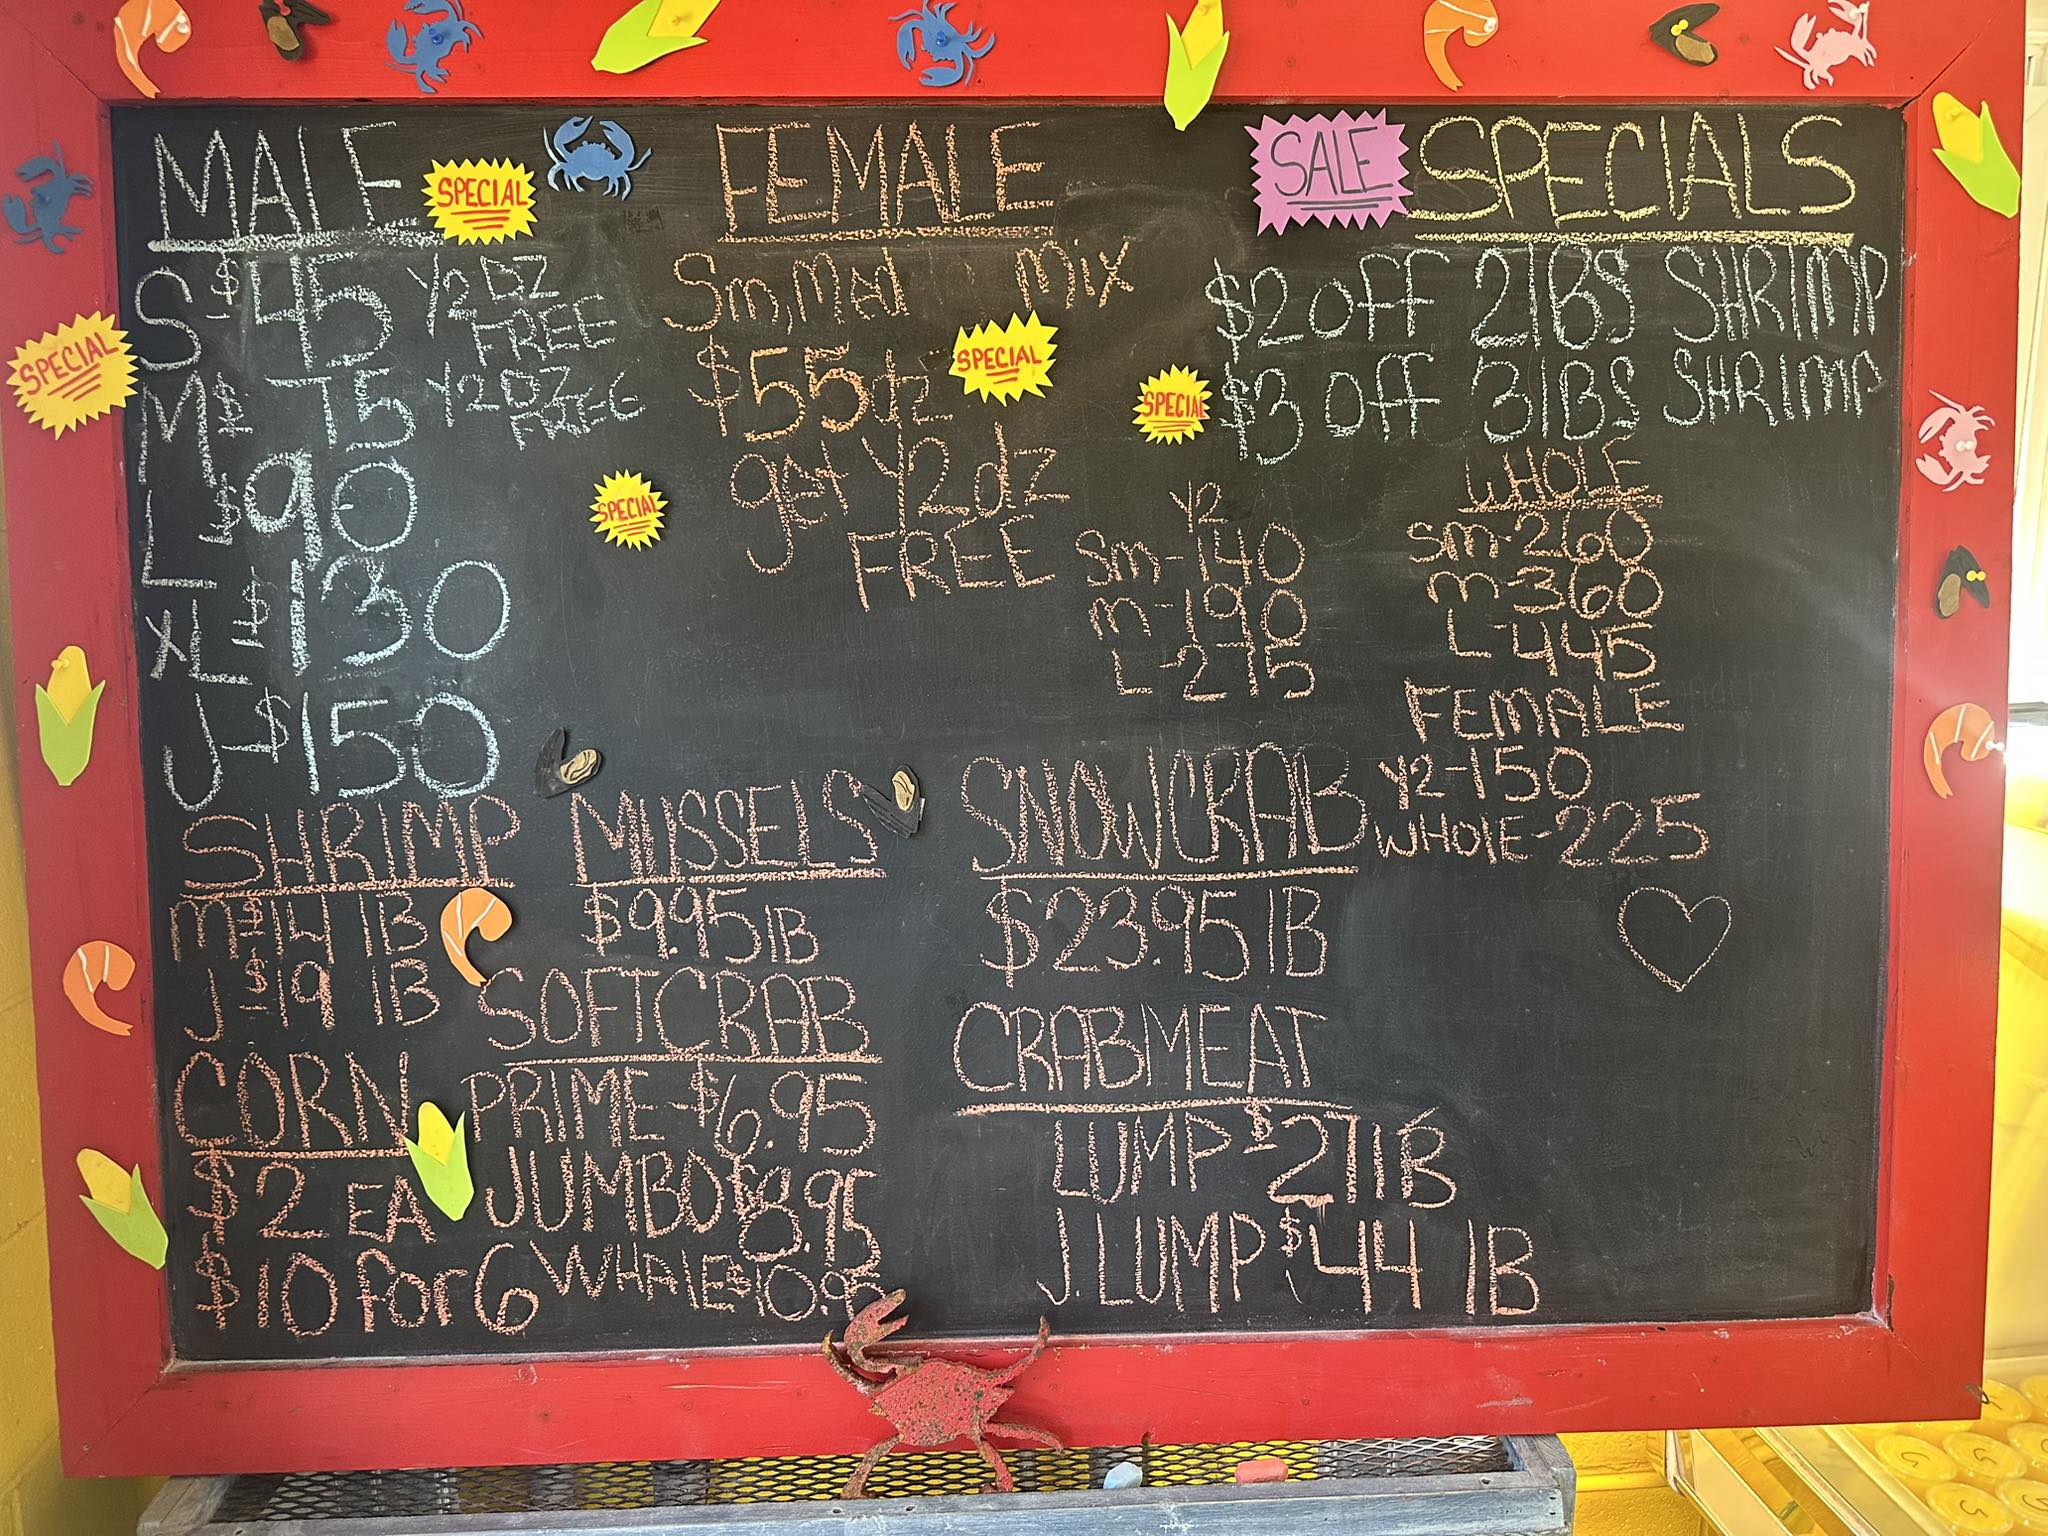 MALE
SPECIAL
S $45 1/2 DZ
FREE
M $75 1/2 DZ
FREE
L $90
XL $130
J $150
SPECIAL
SPECIAL
FEMALE
Sm, Med mix
$55 dz
SPECIAL
get 1/2 dz
FREE
SALE SPECIALS
$2 OFF 2 lBS SHRIMP
SPECIAL
$3 OFF 3 lBS SHRIMP
1/2
Sm-140
m-190
L-275
WHOLE
Sm-260
m-360
L-445
FEMALE
1/2-150
WHOlE-225
SHRIMP
m $14 lB
J $19 lB
CORN
$2 EA
$10 for 6
MUSSELS
$9.95 lB
SOFTCRAB
PRIME-$6.95
JUMBO $8.95
WHALE $10.95
SNOWCRAB
$23.95 lB
CRABMEAT
LUMP $27 lB
J. LUMP $44 lB